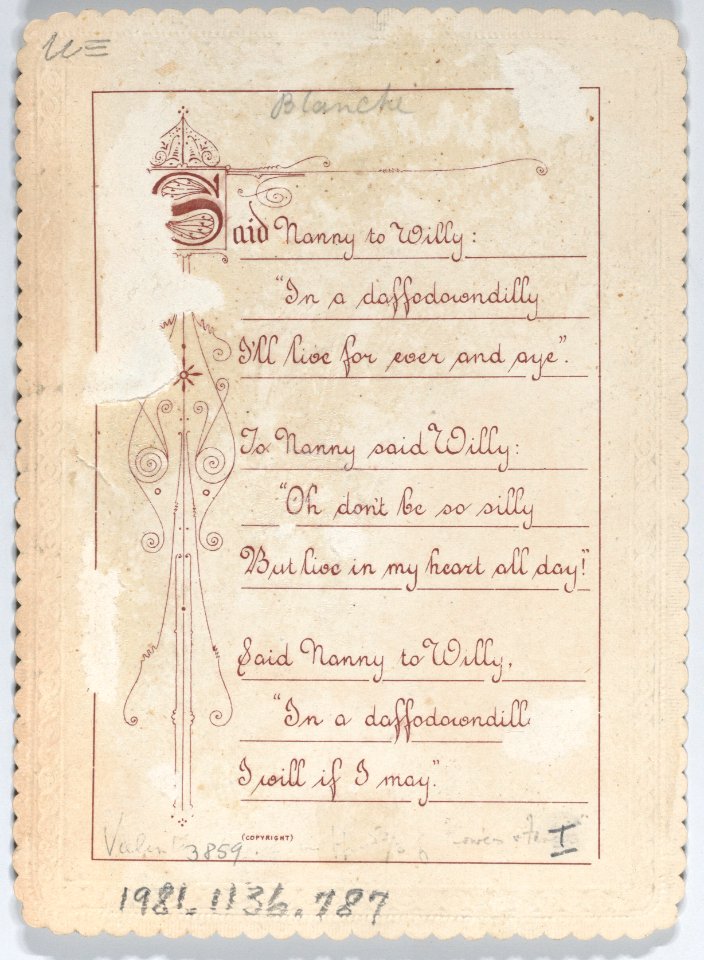 Blanche
Said Nanny to Willy:
"In a daffodowndilly
I'll live for ever and aye".
To Nanny said Willy:
"Oh don't be so silly
But live in my heart all day!"
Said Nanny to Willy,
"In a daffodowndill
I will if I may."
(COPYRIGHT)
Valen 3859. I
1981.1136.787